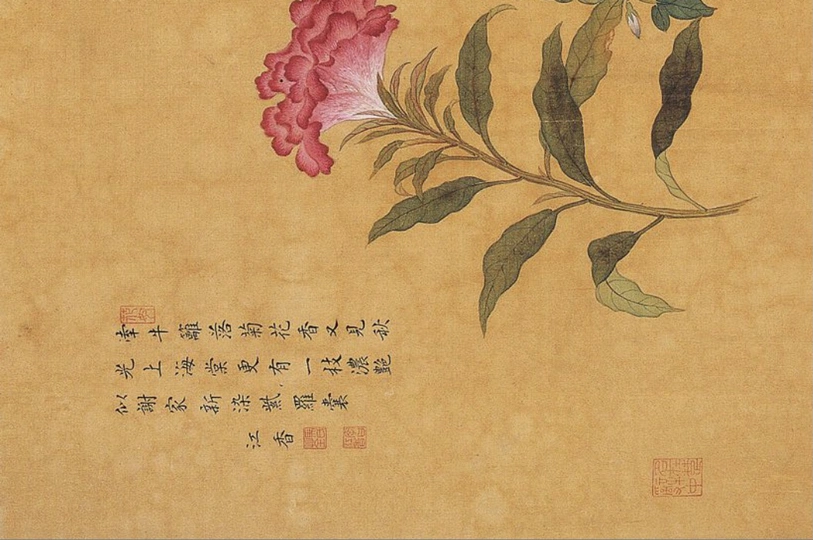 牽牛籬落菊花香又見秋
光上海棠更有一枝濃艷
似謝家新染紫羅囊
江香